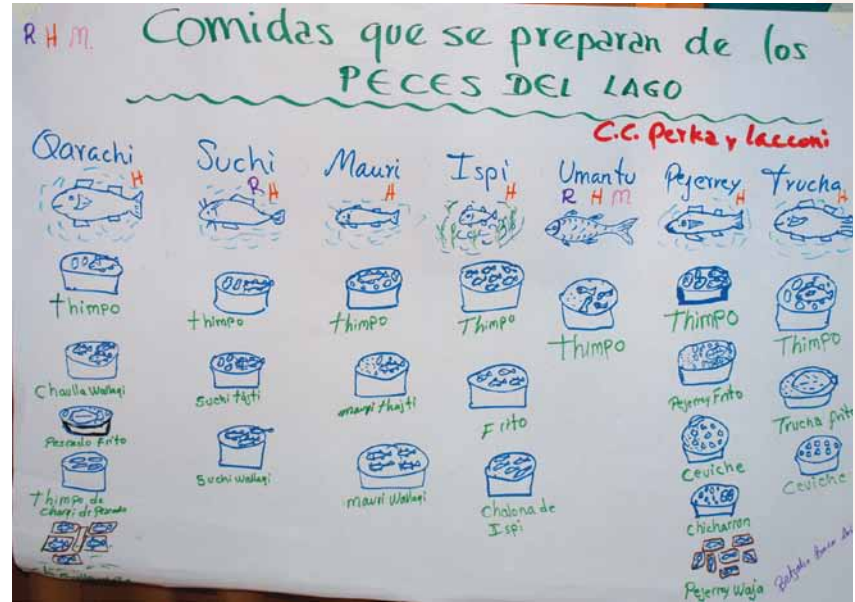 R H M.
Comidas que se preparan de los
PECES DEL LAGO
C.C. Perka y Lacconi
Qarachi
H
thimpo
Chaulla Wallaqi
Pescado Frito
Thimpo de
Charqi de Pescado
Suchi
R H
thimpo
Suchi thjti
Suchi Wallaqi
Mauri
H
thimpo
mauri thajti
mauri Wallaqi
Ispi
H
Thimpo
Frito
Chalona de
Ispi
Umantu
R H M
thimpo
Pejerrey
H
Thimpo
Pejerrey Frito
Ceviche
chicharron
Pejerrey Waja
Trucha
H
Thimpo
Trucha frito
Ceviche